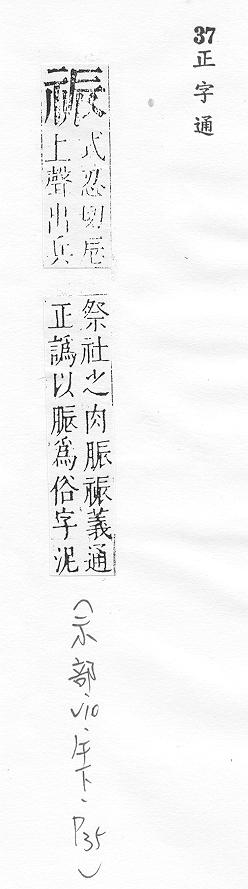 37
正字通
祳
式忍切辰
上聲出兵
祭社之肉脤祳義通
正譌以脤爲俗字泥
(示部·V10·午下·P35)